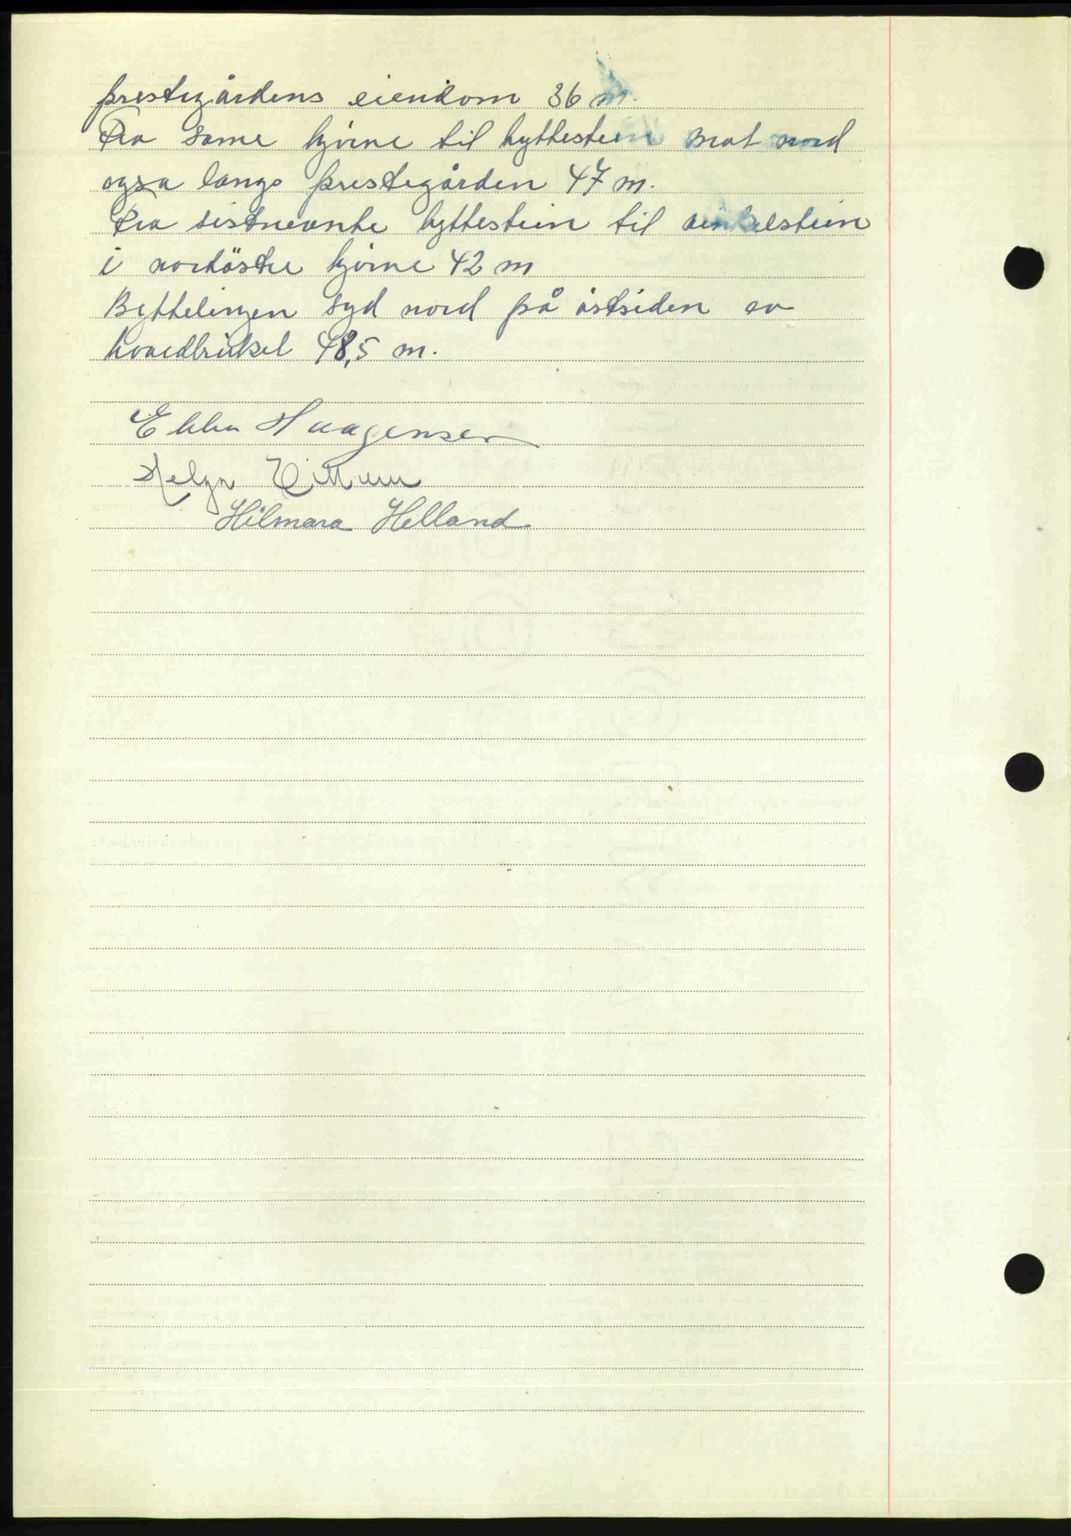 prestegårdens eiendom 36 m.
Fra same hjörne til byttestein mot nord
også langs prestegården 47 m.
Fra sistnevnte byttestein til vinkelstein
i nordöstre hjörne 42 m
Byttelinjen syd nord på östsiden av
hovedbruket 48,5 m.
Ebba Haagensen
Helga
Hilmara Helland.